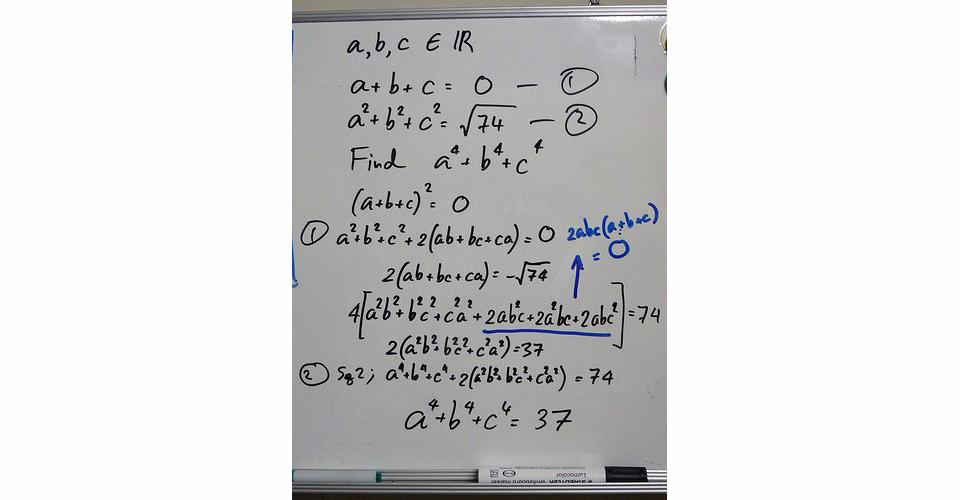 a, b, c ∈ ℝ
a + b + c = 0 — ①
a² + b² + c² = √74 — ②
Find a⁴ + b⁴ + c⁴
(a+b+c)² = 0
① a² + b² + c² + 2(ab+bc+ca) = 0
2abc(a+b+c)
= 0
2(ab+bc+ca) = -√74
4[a²b² + b²c² + c²a² + 2ab²c + 2a²bc + 2abc²] = 74
2(a²b² + b²c² + c²a²) = 37
② Sq 2; a⁴ + b⁴ + c⁴ + 2(a²b² + b²c² + c²a²) = 74
a⁴ + b⁴ + c⁴ = 37
Lumocolor
STAEDTLER whiteboard marker